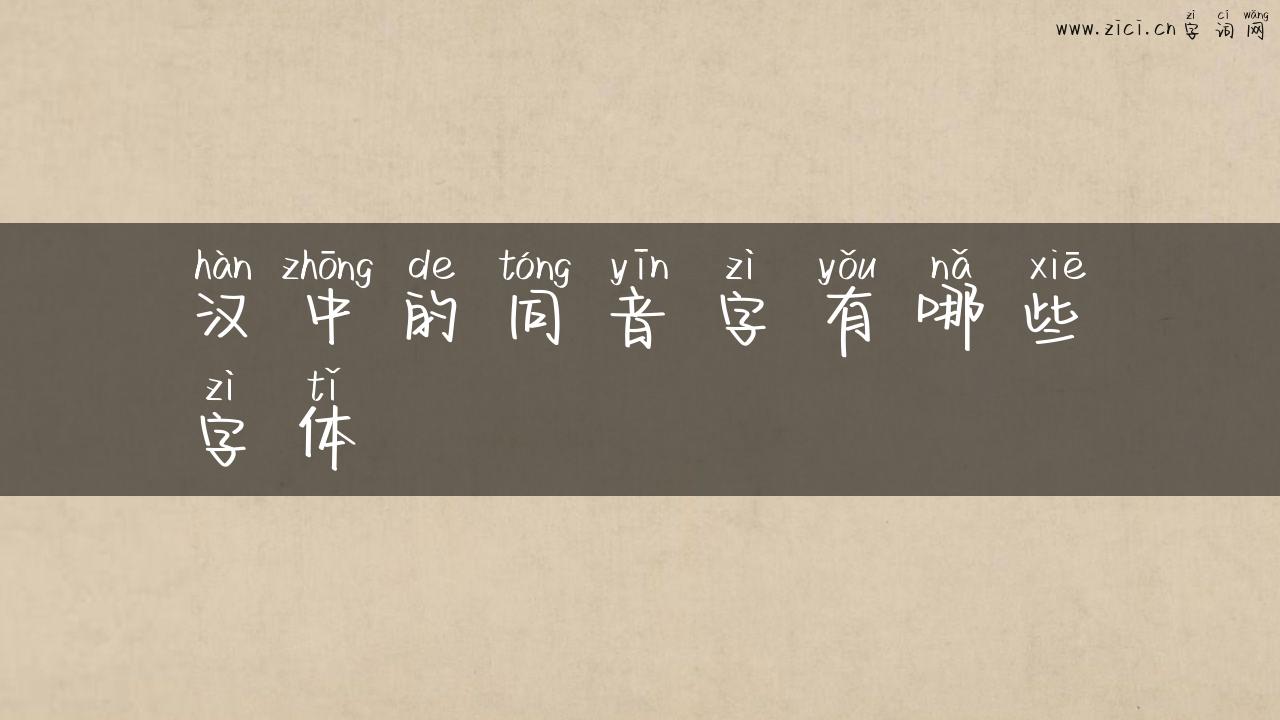 zì cí wǎng
www.zici.cn 字词网
hàn zhōng de tóng yīn zì yǒu nǎ xiē
汉中的同音字有哪些
zì tǐ
字体